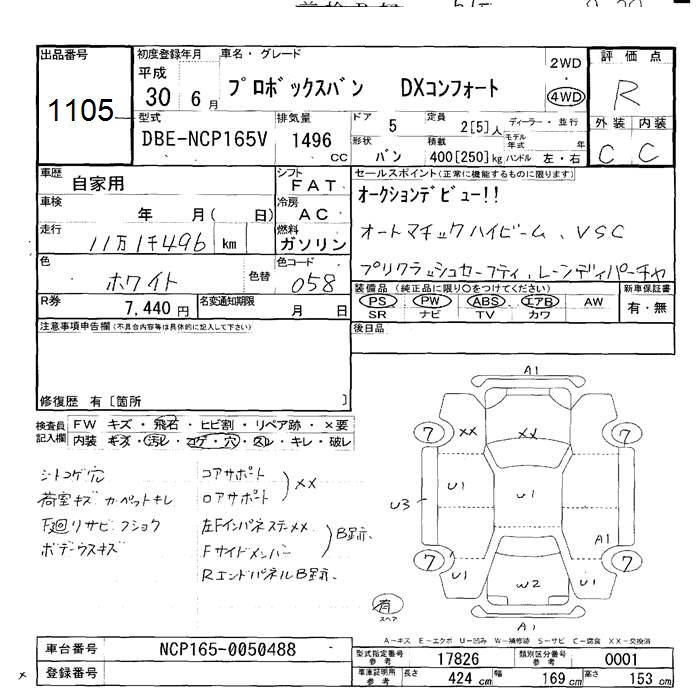 出品番号
1105
初度登録年月
平成
30 6月
車名・グレード
プロボックスバン DXコンフォート
2WD
4WD
評価点
R
外装 内装
C C
型式
DBE-NCP165V
排気量
1496
CC
ドア
5
定員
2[5]人
形状
バン
積載
400[250]kg
ディーラー・並行
モデル年式 年
ハンドル 左・右
車歴
自家用
シフト
FAT
車検
年 月( 日)
冷房
AC
走行
11万1千496 km
燃料
ガソリン
色
ホワイト
色替
色コード
058
R券
7,440円
名変通知期限
月 日
セールスポイント(正常に機能するものに限ります)
オークションデビュー!!
オートマチックハイビーム、VSC
プリクラッシュセーフティ、レーンディパーチャ
装備品(純正品に限り○をつけてください)
PS PW ABS エアB AW
SR ナビ TV カワ
新車保証書
有・無
注意事項申告欄(不具合内容等は具体的に記入して下さい)
後日品
修復歴 有[箇所 ]
検査員記入欄
FW キズ・飛石・ヒビ割・リペア跡・×要
内装 キズ・汚レ・コゲ・穴・スレ・キレ・破レ
シートコゲ穴
荷室キズ カーペットキレ
下廻リサビフショク
ボデーウスキズ
コアサポート
ロアサポート
××
左Fインパネステー××
Fサイドメンバー
B跡.
RエンドパネルB跡.
A1
7 7
×× ××
U1 U1
U3
A1
7 7
U1 W2 U1
有
スペア
A1
A-キズ E-エクボ U-凹み W-補修跡 S-サビ C-腐食 XX-交換済
車台番号
NCP165-0050488
登録番号
型式指定番号
参考
17826
類別区分番号
参考
0001
車庫証明用
参考
長さ 424 cm
幅 169 cm
高さ 153 cm